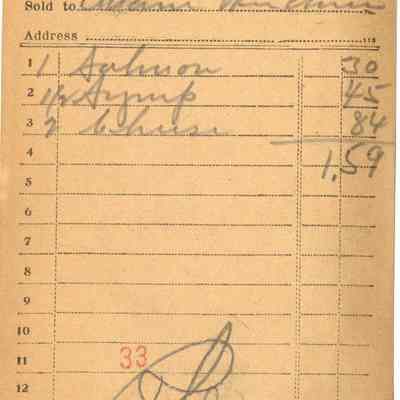 Sold to
Address
1 1 Salmon 30
2 1/2 Syrup 45
3 2 Cheese 84
4 1.59
5
6
7
8
9
10
11 33
12